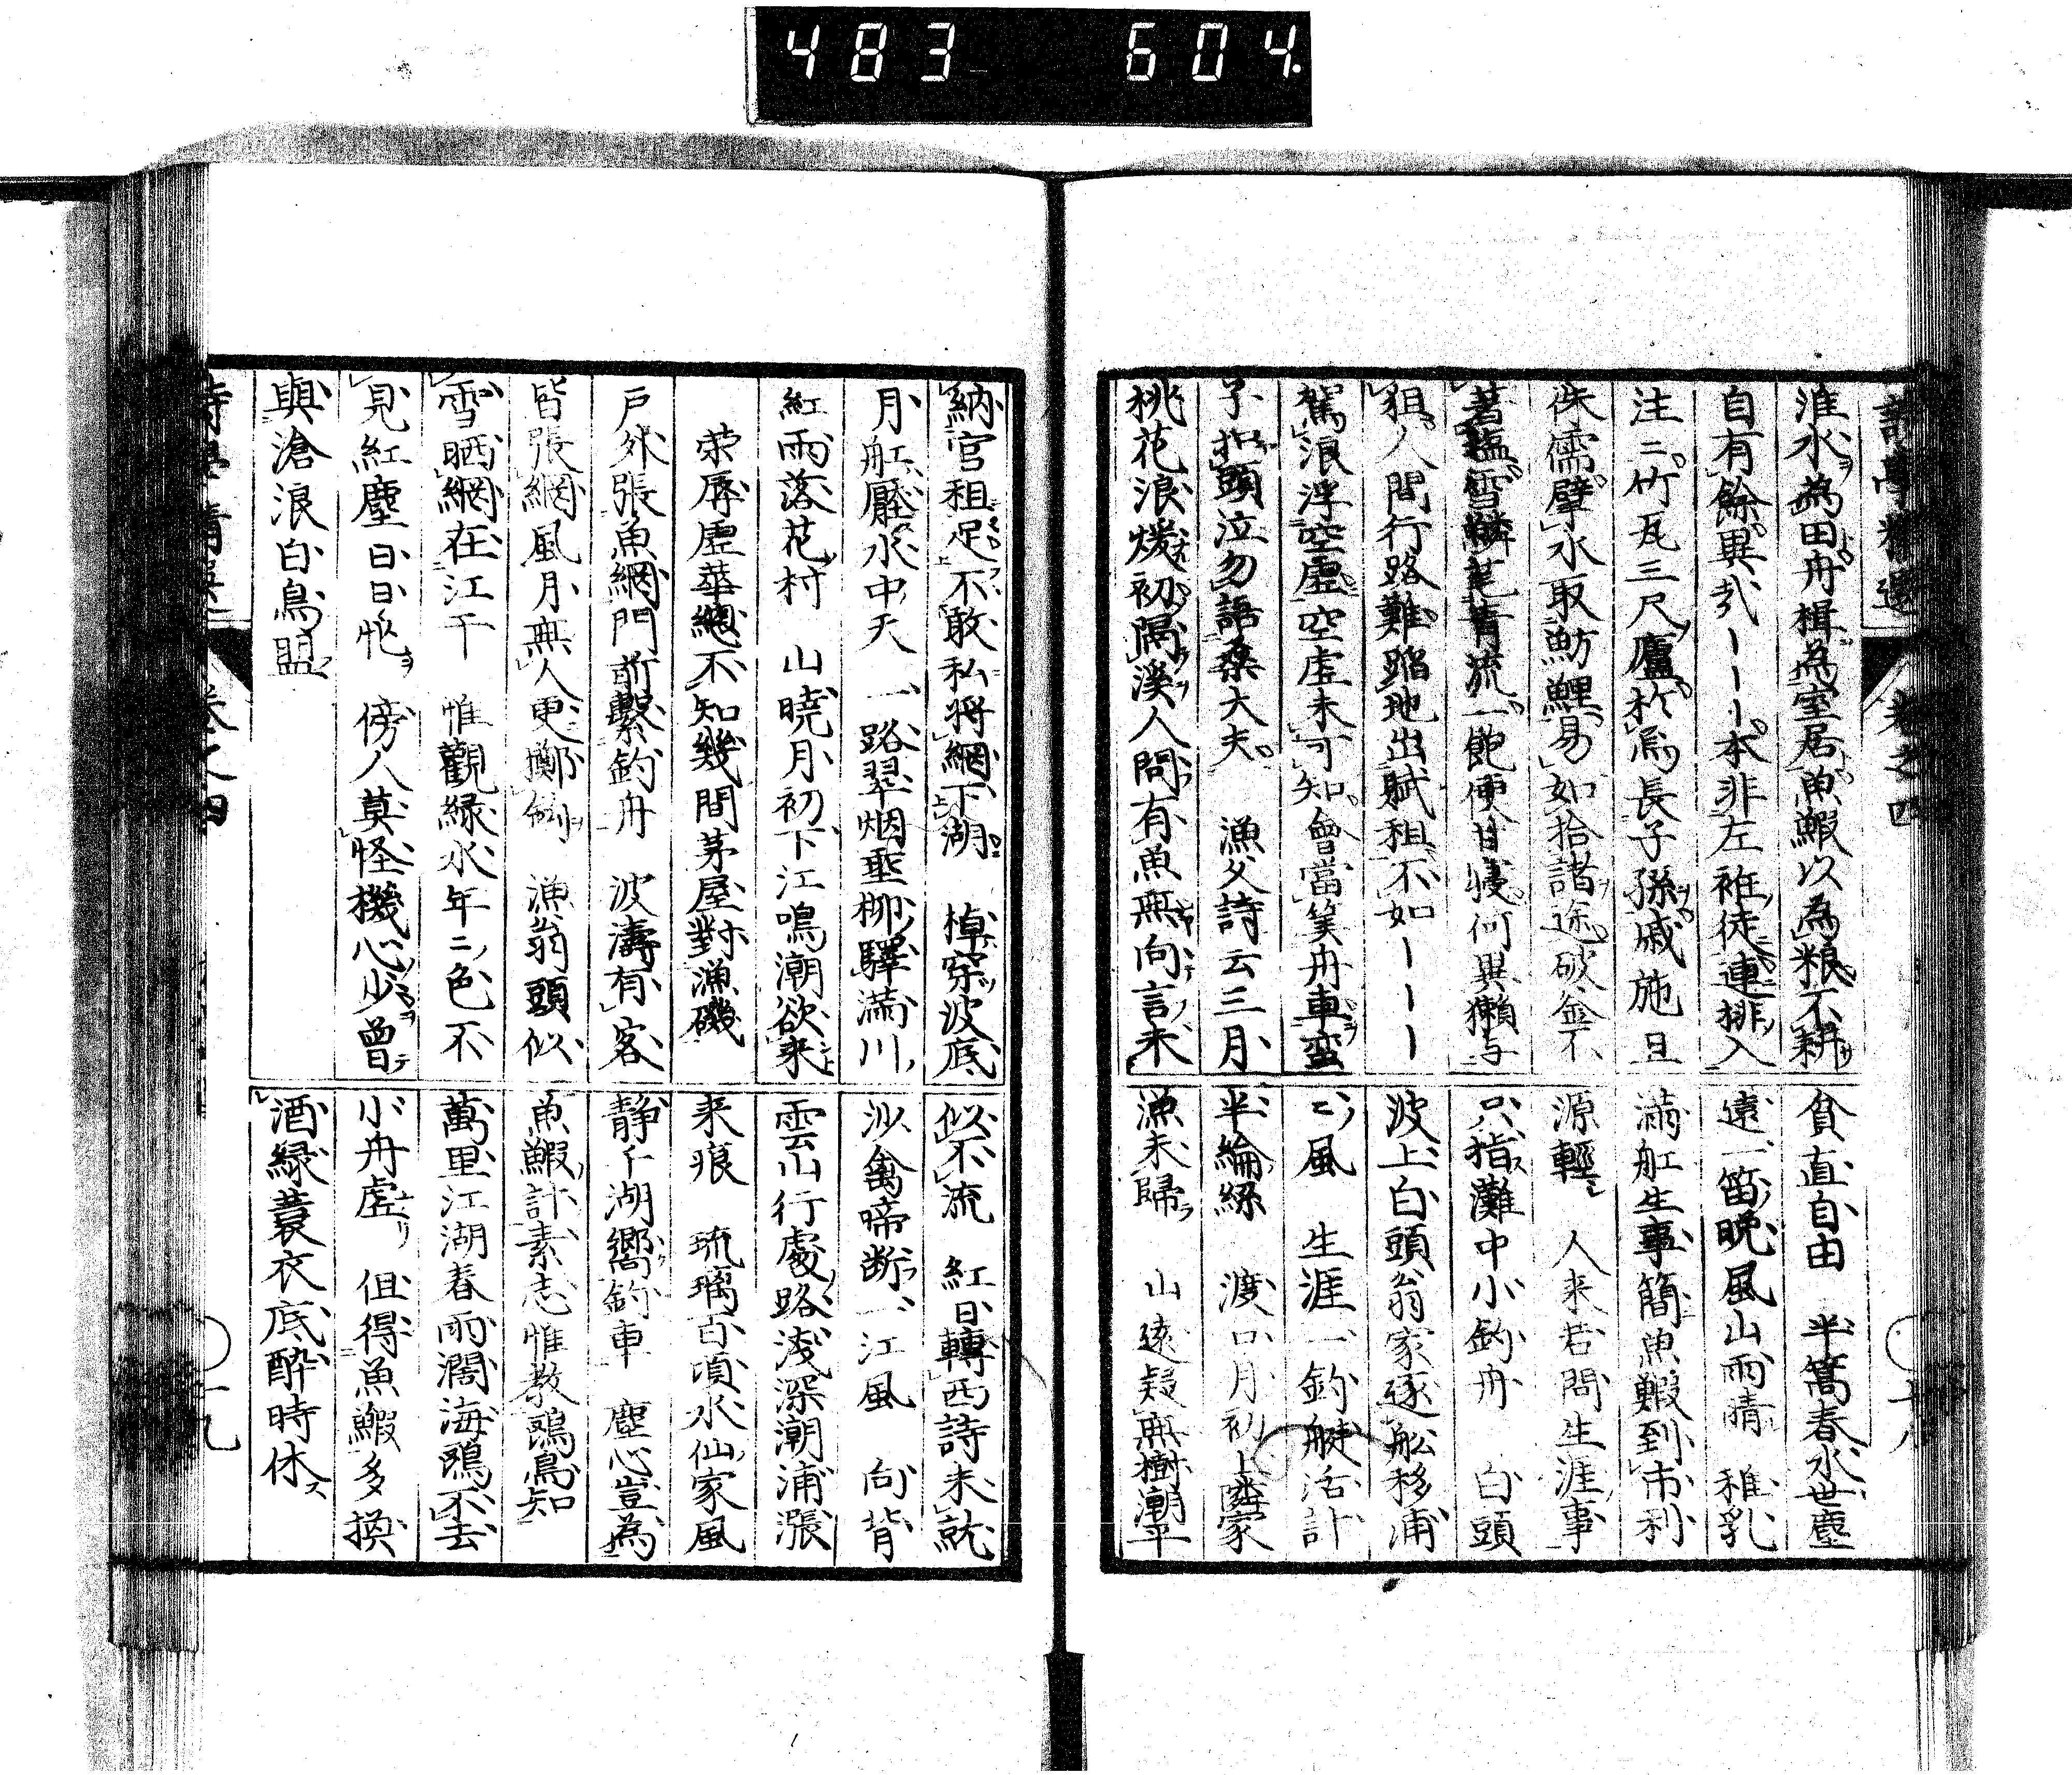 483 604.
詩學精選 卷之四
淮水為田舟楫為室居魚鰕以為粮不耕
自有餘異哉｜｜｜本非左衽徒連排入
注〻竹瓦三尺廬於焉長子孫戚施且
侏儒擘水取魴鯉易如拾諸途破釜不
著塩雪鱗芼青流一飽便甘寝何異獺与
狙人間行路難踏地出賦租不如｜｜｜
駕浪浮空虛空虛未可知會當筭舟車蛮
子扣頭泣勿語桑大夫 漁父詩云三月
桃花浪煖初隔溪人問有魚無向言未
貧直自由 半篙春水世塵
遠一笛晩風山雨晴 稚乳
滿舡生事簡魚鰕到市利
源輕 人来若問生涯事
只指灘中小釣舟 白頭
波上白頭翁家逐船移浦
〻風 生涯一釣艇活計
半綸絲 渡口月初上隣家
漁未歸 山遠疑無樹潮平
納官租足不敢私將網下湖 棹穿波底
月舡壓水中天 一路翠烟垂柳驛滿川
紅雨落花村 山曉月初下江鳴潮欲来
荣辱虛華總不知幾間茅屋對漁磯
戸外張魚網門前繫釣舟 波濤有客
皆張網風月無人更擲鈎 漁翁頭似
雪晒網在江干 惟觀緑水年〻色不
見紅塵日日忙 傍人莫怪機心少曾
與滄浪白鳥盟
似不流 紅日轉西詩未就
沙禽啼断一江風 向背
雲山行處路浅深潮浦漲
来痕 琉璃百頃水仙家風
靜平湖響釣車 塵心豈為
魚鰕計素志惟教鷗鳥知
萬里江湖春雨濶海鷗不去
小舟虛 但得魚鰕多換
酒緑蓑衣底酔時休
卷之四